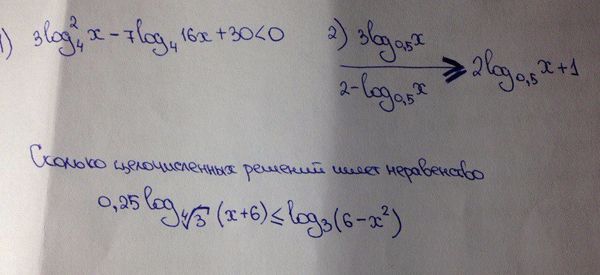 1) 3log₄²x − 7log₄16x + 30 < 0
2) 3log₀,₅x / (2−log₀,₅x) ⩾ 2log₀,₅x + 1
Сколько целочисленных решений имеет неравенство
0,25log_∜3 (x+6) ≤ log₃(6−x²)